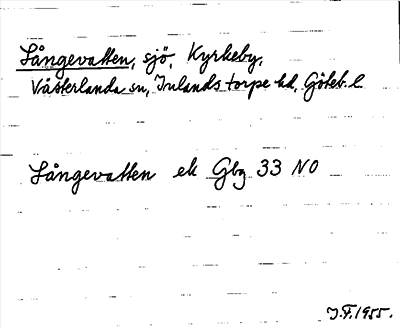 Långevatten, sjö, Kyrkeby,
Västerlanda sn, Inlands torpe hd, Göteb. l
Långevatten ek Gbg 33 NO
J.F. 1955.